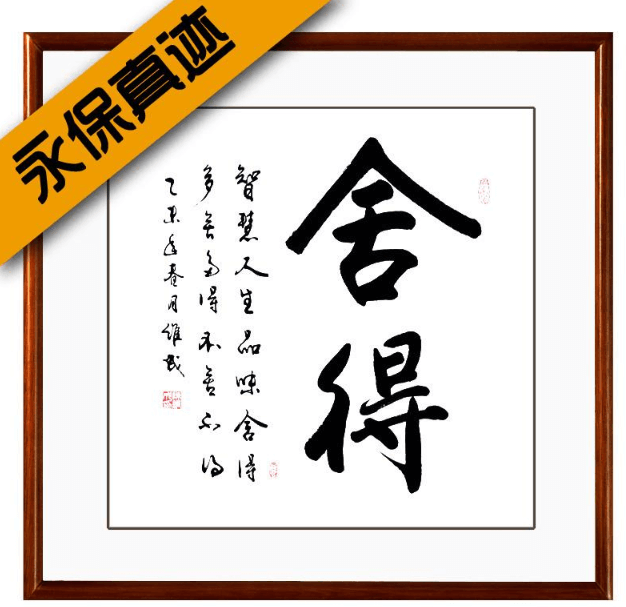 永保真迹
舍得
智慧人生品味舍得
多舍多得不舍不得
乙未年春月维